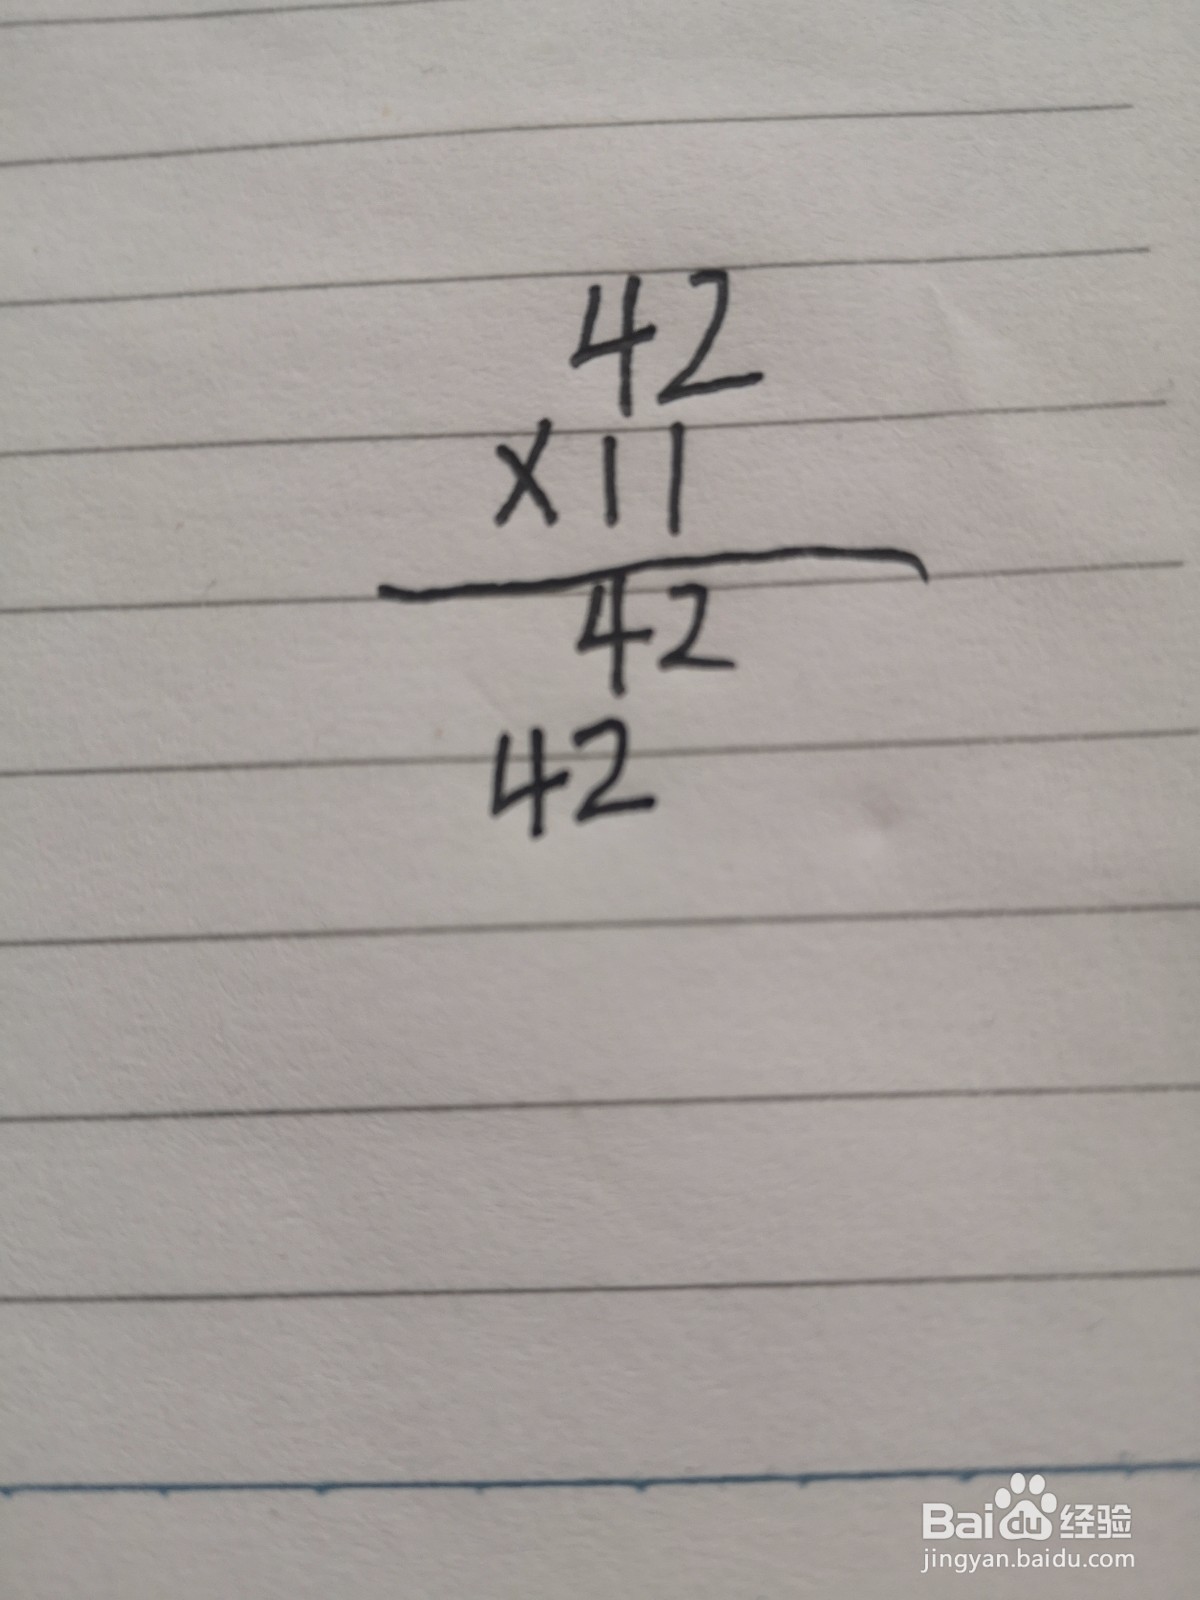 42
×11
42
42
Baidu经验
jingyan.baidu.com